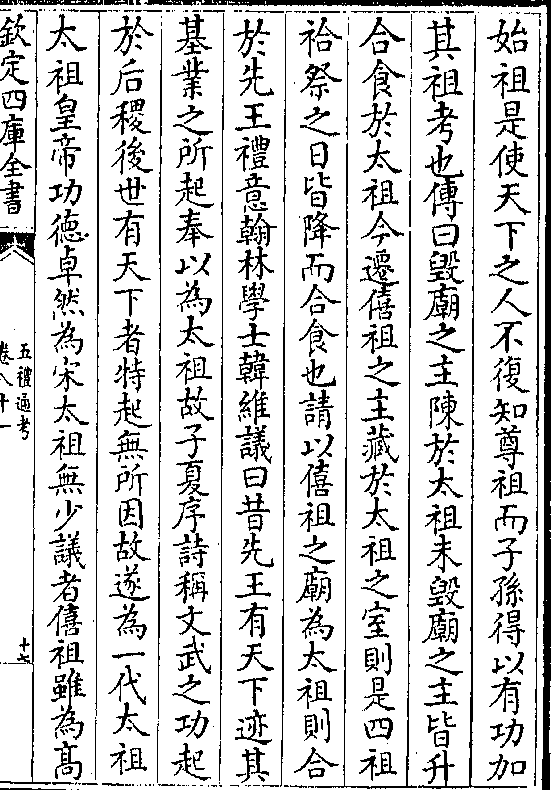 始祖是使天下之人不復知尊祖而子孫得以有功加
其祖考也傳曰毀廟之主陳於太祖未毀廟之主皆升
合食於太祖今遷僖祖之主藏於太祖之室則是四祖
祫祭之日皆降而合食也請以僖祖之廟為太祖則合
於先王禮意翰林學士韓維議曰昔先王有天下迹其
基業之所起奉以為太祖故子夏序詩稱文武之功起
於后稷後世有天下者特起無所因故遂為一代太祖
太祖皇帝功德卓然為宋太祖無少議者僖祖雖為髙
欽定四庫全書
五禮通考
卷八十一
十七